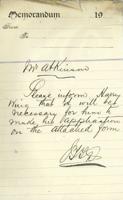 Memorandum
19
From
To
Mr Atkinson
Please inform Harry
Wing that it will be
necessary for him to
make his application
on the attached form